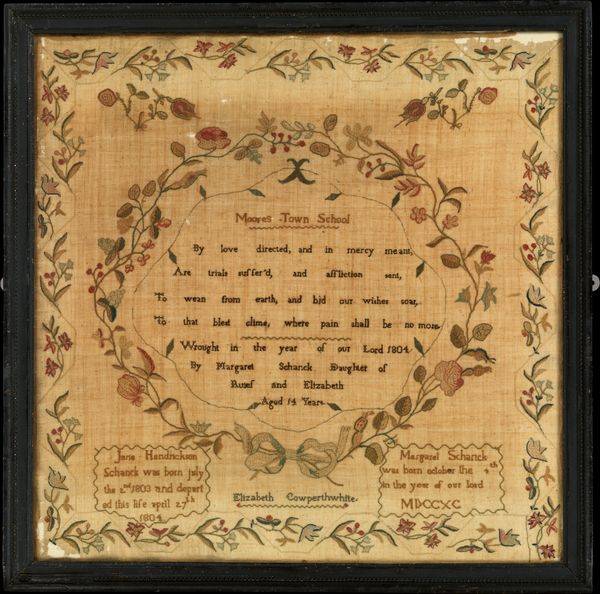 Moores Town School
By love directed, and in mercy meant,
Are trials suffer'd, and affliction sent,
To wean from earth, and bid our wishes soar,
To that blest clime, where pain shall be no more.
Wrought in the year of our Lord 1804
By Margaret Schanck Daughter of
Rulef and Elizabeth
Aged 14 Years
Jane Hendrickson
Schanck was born july
the 2nd 1803 and depart
ed this life april 27th
1804
Elizabeth Cowperthwhite.
Margaret Schanck
was born october the 4th
in the year of our lord
MDCCXC